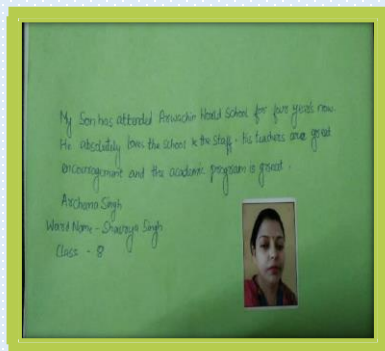 My Son has attended Arwachin World School for four years now.
He absolutely loves the school & the staff. His teachers are great
encouragement and the academic program is great.
Archana Singh
Ward Name - Shaurya Singh
Class - 8